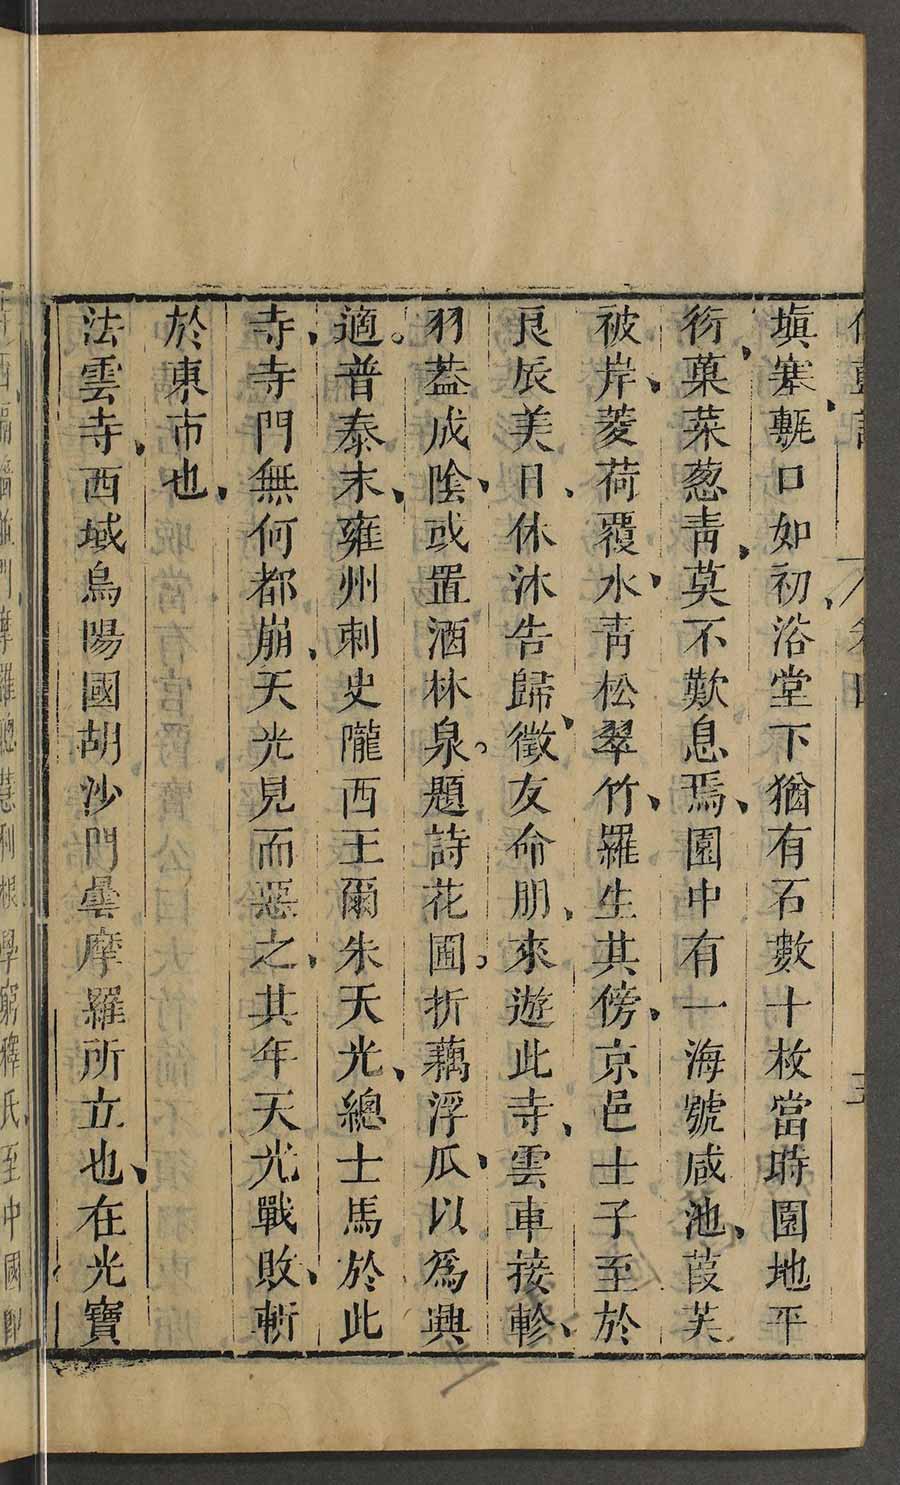 伽藍記 卷四 五
塡塞甎口如初浴堂下猶有石數十枚當時園地平
衍菓菜葱靑莫不歎息焉園中有一海號咸池葭芙
被岸菱荷覆水靑松翠竹羅生其傍京邑士子至於
良辰美日休沐告歸徵友命朋來遊此寺雲車接軫
羽葢成隂或置酒林泉題詩花圃折藕浮瓜以爲興
適普泰末雍州刺史隴西王爾朱天光總士馬於此
寺寺門無何都崩天光見而惡之其年天光戰敗斬
於東市也
法雲寺西域烏陽國胡沙門曇摩羅所立也在光寶
寺西隔牆並門摩羅聰慧利根學窮釋氏至中國卽